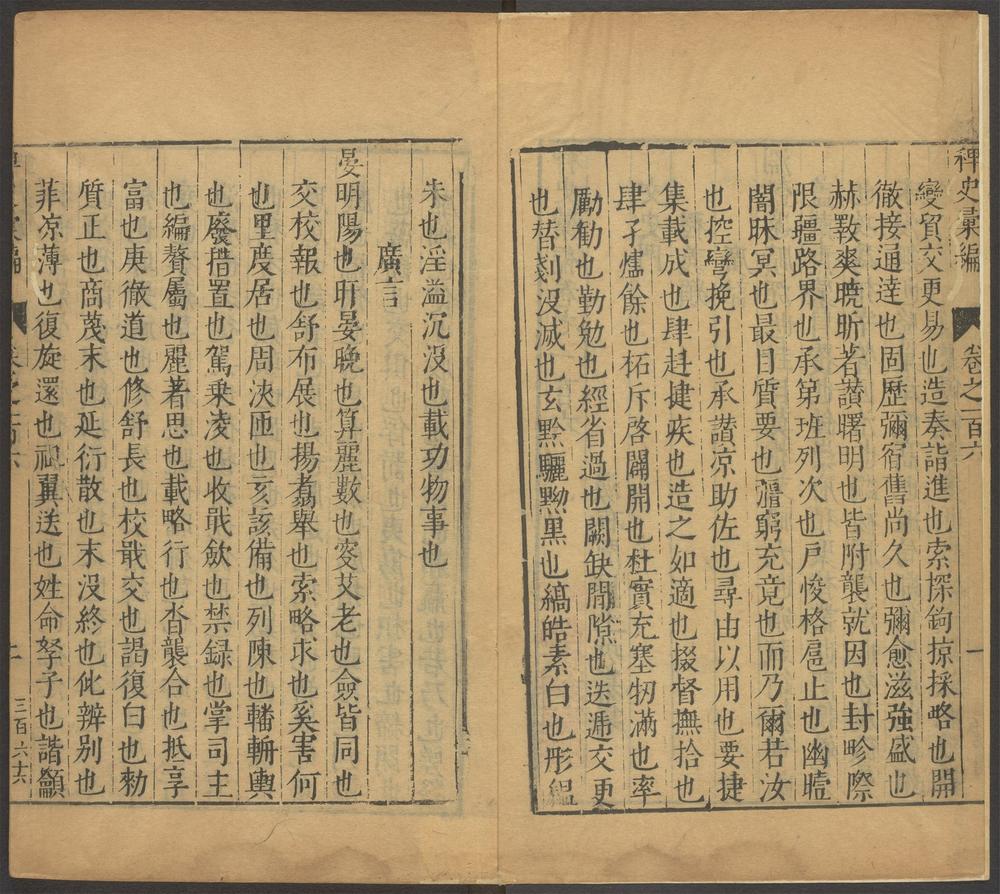 稗史彙編
卷之一百六
一
變貿交更易也造奏詣進也索探鉤掠採略也開
徹接通達也固歷彌宿舊尚久也彌愈滋強盛也
赫斁爽曉昕著讃曙明也皆附襲就因也封畛際
限疆路界也承第班列次也戶悛格扈止也幽曀
闇昧冥也最目質要也𤅬窮充竟也而乃爾若汝
也控彎挽引也承讃凉助佐也尋由以用也要捷
集載成也肆赶捷疾也造之如適也掇督撫拾也
肆孑爊餘也柘斥啓闢開也杜實充塞牣滿也率
勵勸也勤勉也經省過也闕缺閒隙也迭遞交更
也替剗沒滅也玄黔驪黝黑也縞皓素白也彤縕
朱也淫溢沉沒也載功物事也
廣言
晏明陽也旰晏晚也算麗數也叜艾老也僉皆同也
交校報也舒布展也揚翥舉也索略求也奚害何
也里度居也周浹匝也亥該備也列陳也轓軿輿
也廢措置也駕乗凌也收戢歛也禁録也掌司主
也編贅屬也麗著思也載略行也沓襲合也抵享
富也庚徹道也修舒長也校戢交也謁復白也勑
質正也商蔑末也延衍散也末沒終也仳辨别也
菲凉薄也復旋還也祖翼送也姓命孥子也諧龥
三百六十六